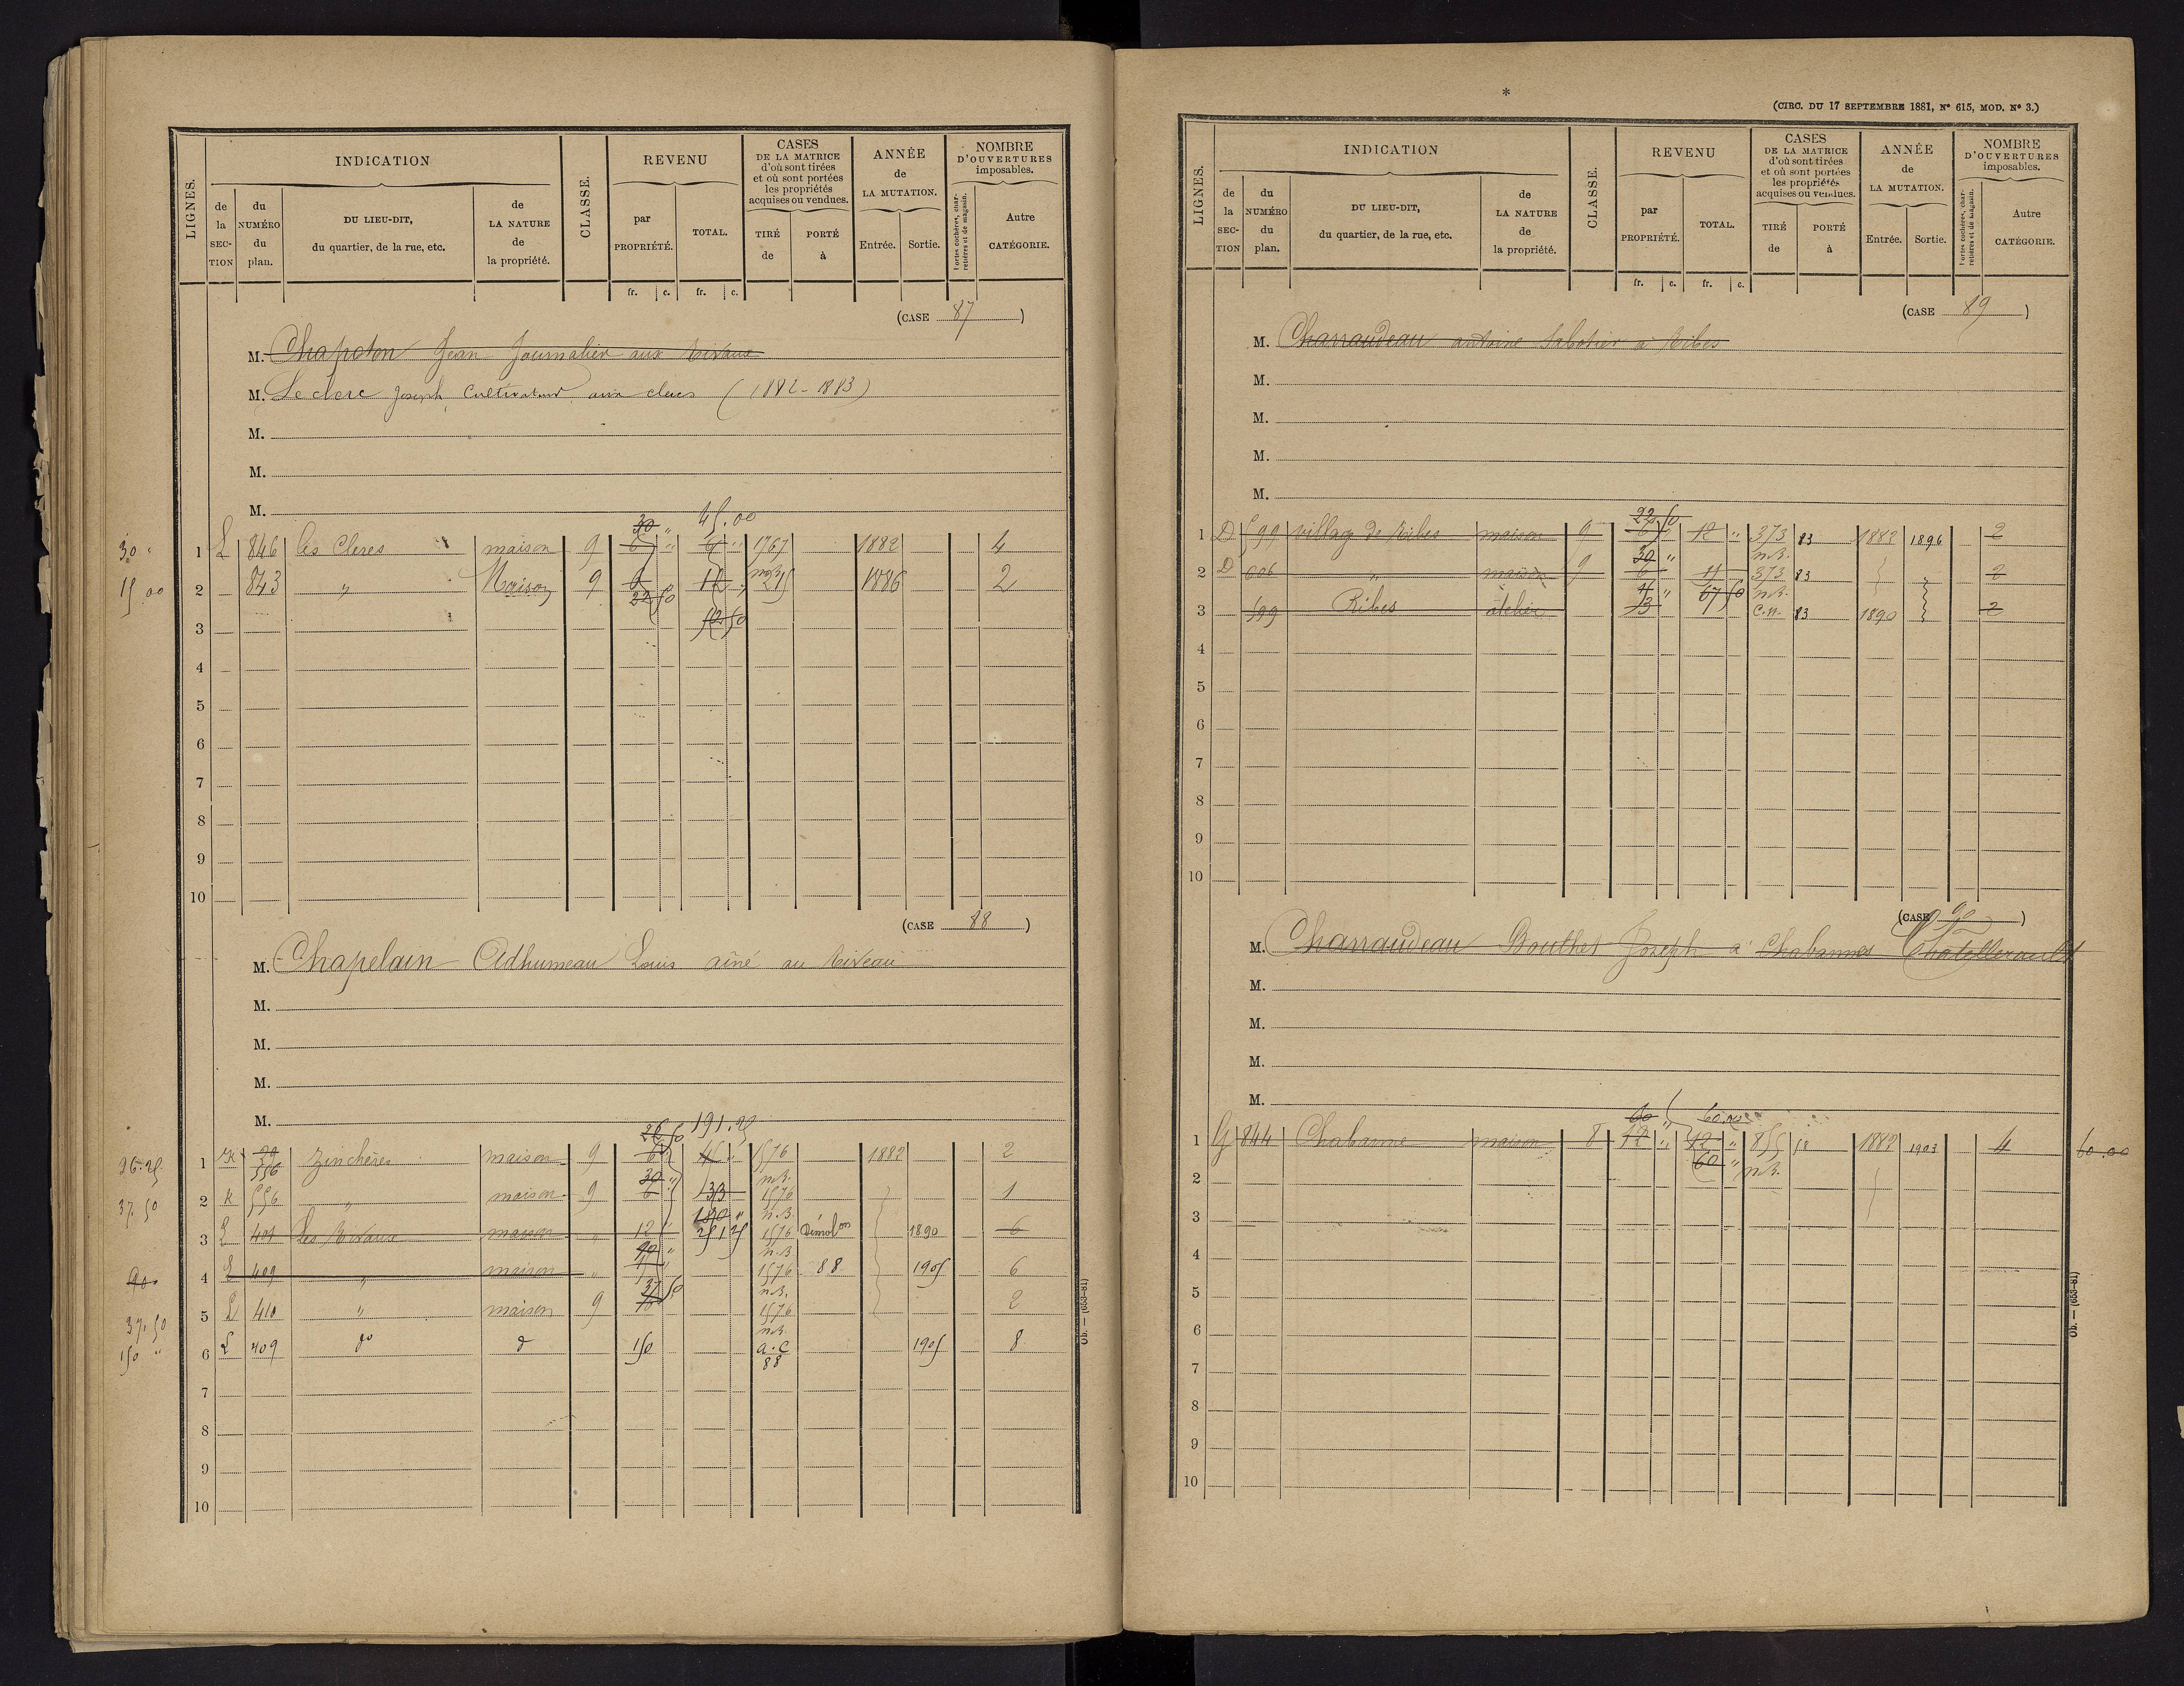 LIGNES.
INDICATION
de la SECTION
du NUMÉRO du plan.
DU LIEU-DIT, du quartier, de la rue, etc.
de LA NATURE de la propriété.
CLASSE.
REVENU
par PROPRIÉTÉ.
TOTAL.
CASES DE LA MATRICE d'où sont tirées et où sont portées les propriétés acquises ou vendues.
TIRÉ de
PORTÉ à
ANNÉE de LA MUTATION.
Entrée. Sortie.
NOMBRE D'OUVERTURES imposables.
Portes cochères, charretières et de magasin.
Autre CATÉGORIE.
fr. c. fr. c.
(CASE 87)
M. Chapoton Jean Journalier aux
M. Leclerc Joseph Cultivateur aux (1882-1883)
M.
M.
M.
30 " 45.00
30 " 1 L 846 les Cleres maison 9 6 " 6 " 1767 1882 4
15.00 2 843 " Maison 9 12 215 1886 2
22 50
3 52 50
4
5
6
7
8
9
10
(CASE 88)
M. Chapelain Adhumeau Louis aîné au
M.
M.
M.
M.
26.50 191.25
26.25 1 K 556 Zinchères maison 9 6 45 " 1576 1882 2
30 " n.B.
37.50 2 K 556 " maison 9 6 133 1576 1
180 " n.B.
3 L 401 Les maison " 12 " 251 25 1576 Démolon 1890 6
90 " n.B.
90 4 L 409 " maison " 1576 88 1905 6
37 50 n.B.
37.50 5 L 410 " maison 9 1576 2
n.B.
150 " 6 L 409 do d 150 a.C 88 1905 8
7
8
9
10
Ob. — (653-81)
*
(CIRC. DU 17 SEPTEMBRE 1881, No 615, MOD. No 3.)
LIGNES.
INDICATION
de la SECTION
du NUMÉRO du plan.
DU LIEU-DIT, du quartier, de la rue, etc.
de LA NATURE de la propriété.
CLASSE.
REVENU
par PROPRIÉTÉ.
TOTAL.
CASES DE LA MATRICE d'où sont tirées et où sont portées les propriétés acquises ou vendues.
TIRÉ de
PORTÉ à
ANNÉE de LA MUTATION.
Entrée. Sortie.
NOMBRE D'OUVERTURES imposables.
Portes cochères, charretières et de magasin.
Autre CATÉGORIE.
fr. c. fr. c.
(CASE 89)
M. Charraudeau antoine Sabotier à Ribes
M.
M.
M.
M.
22 50
1 D 599 village de Ribes maison 9 6 " 12 " 373 83 1882 1896 2
30 " n.B.
2 D 606 " maison 9 6 373 83 2
67 50 n.B.
3 599 Ribes atelier C.N. 83 1890 2
4
5
6
7
8
9
10
(CASE 90)
M. Charraudeau Bouthet Joseph à Chabannes Chatellerault
M.
M.
M.
M.
60 " 60.00
1 G 844 Chabanne maison 8 12 " 12 " 855 18 1882 1903 4 60.00
60 " n.B.
2
3
4
5
6
7
8
9
10
Ob. — (653-81)